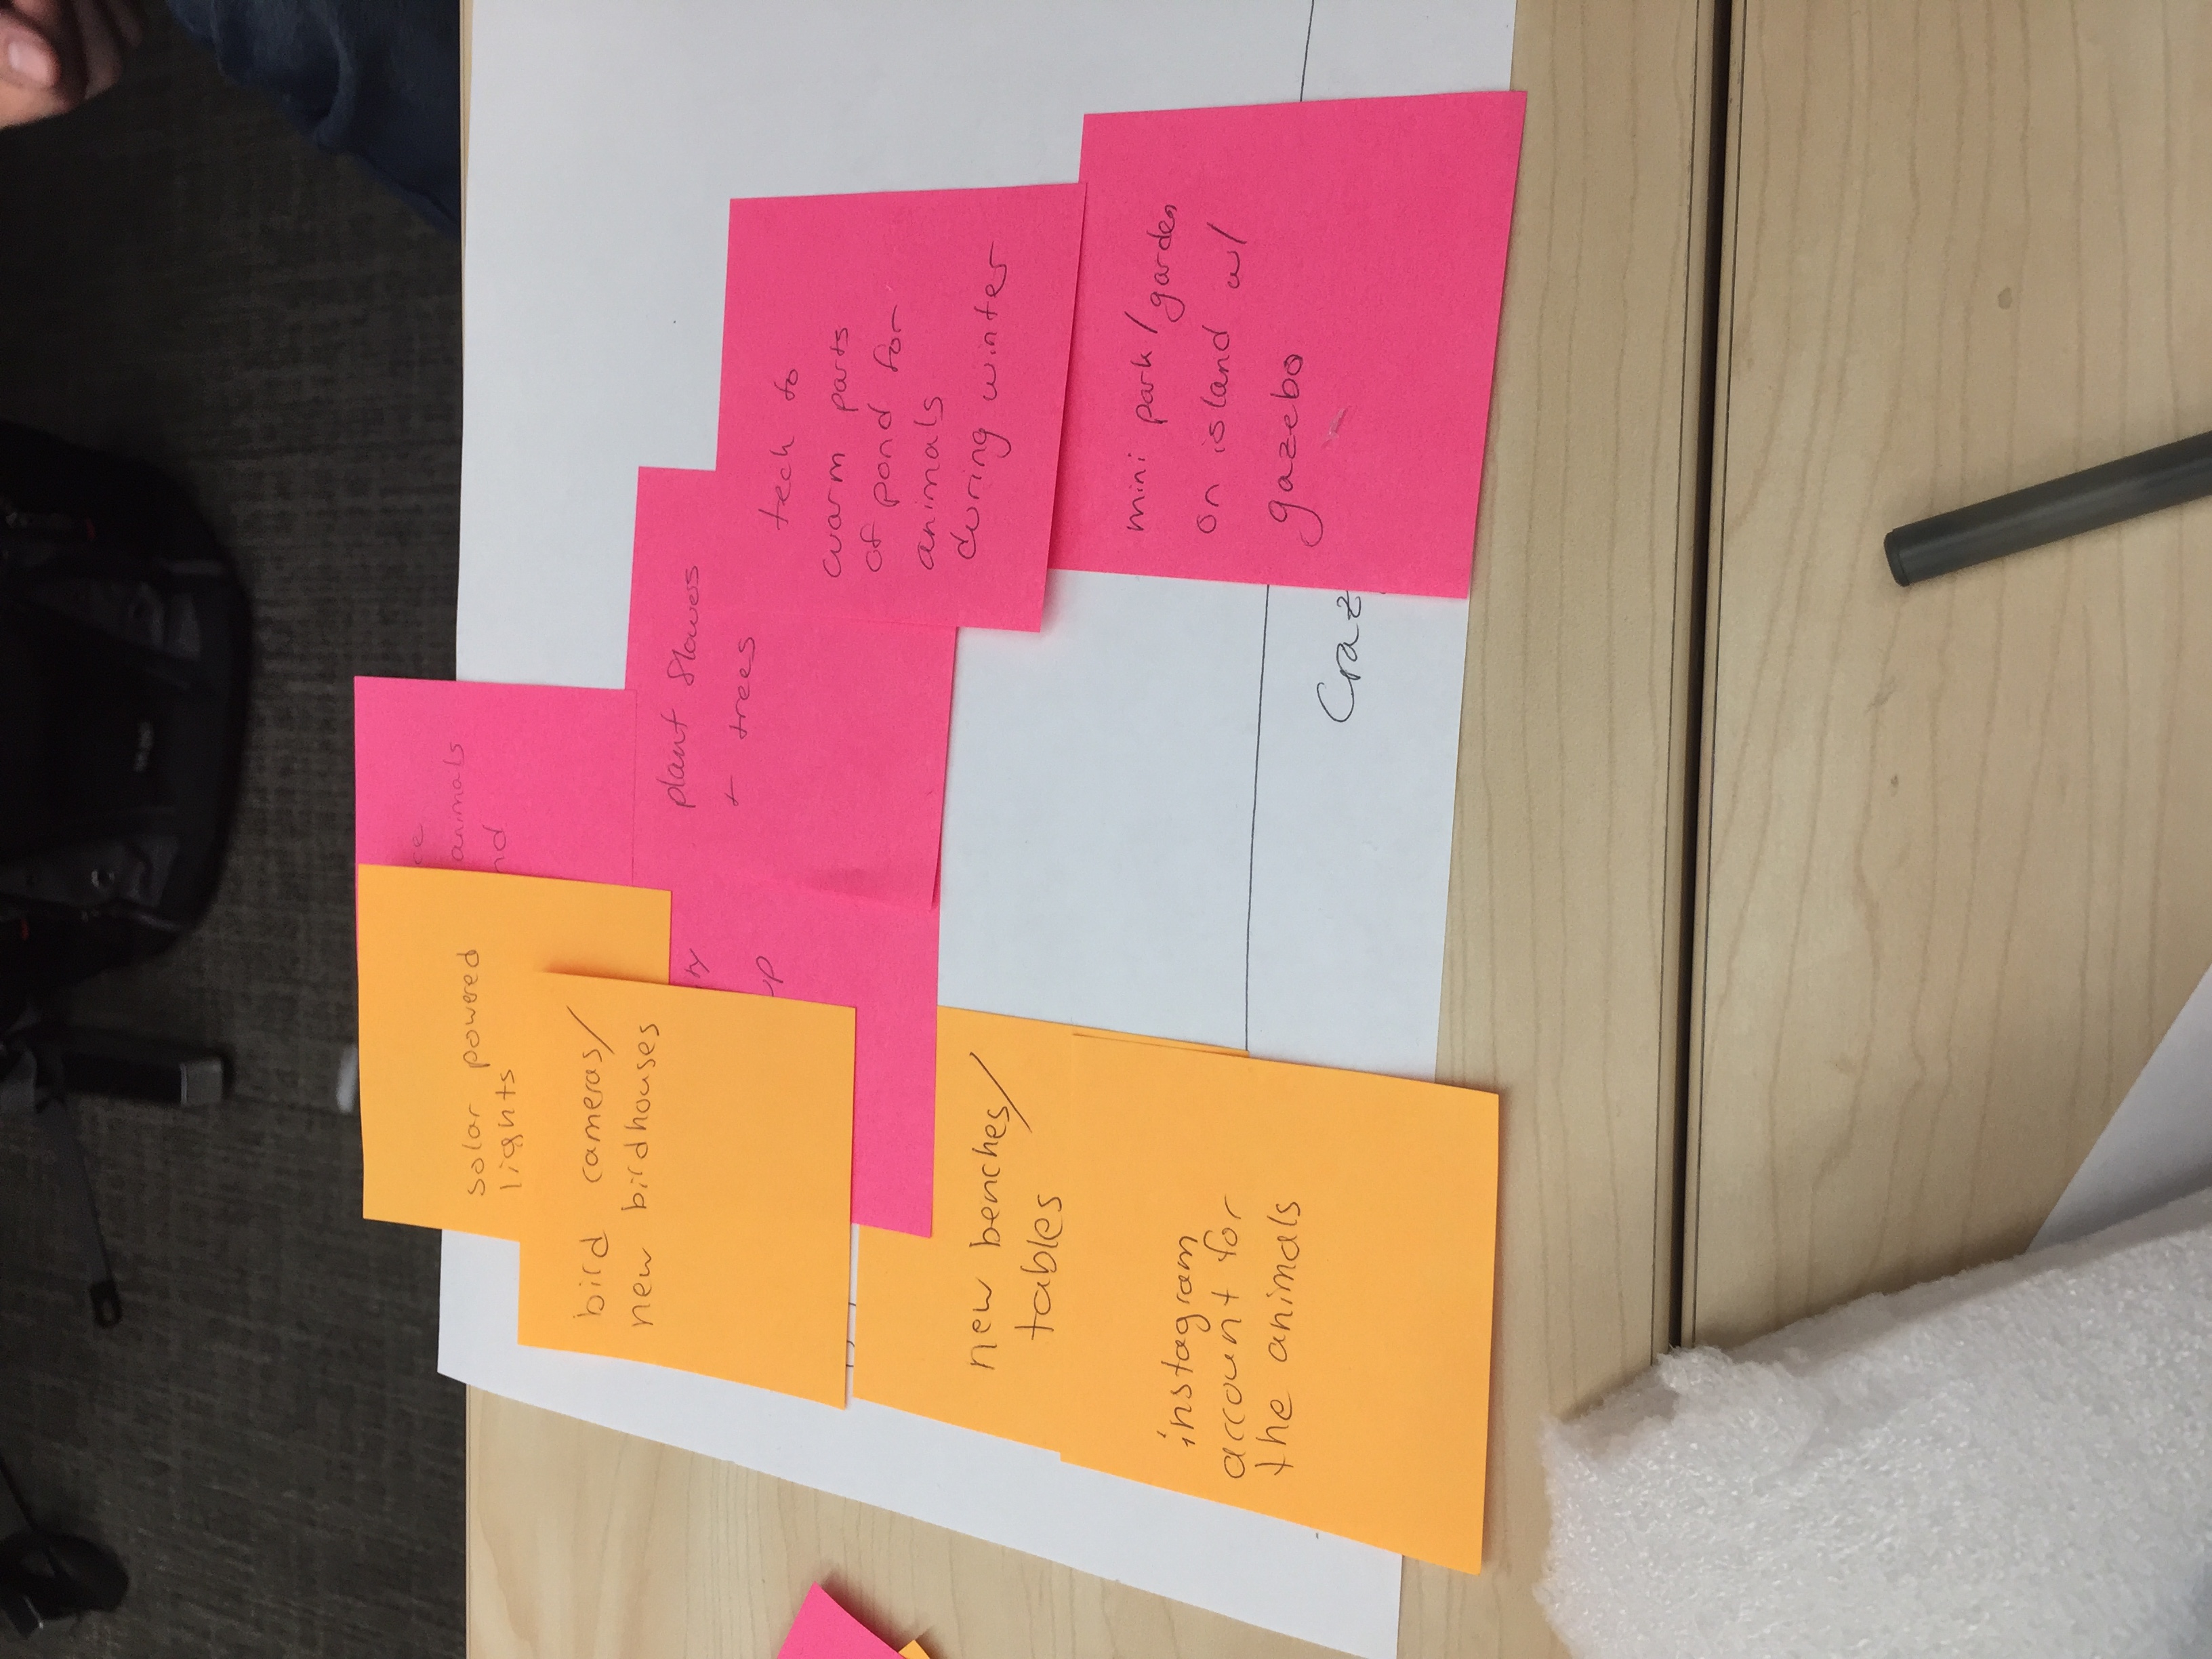 solar powered
lights
animals
bird cameras/
new birdhouses
up
plant flowers
+ trees
tech to
warm parts
of pond for
animals
during winter
new benches/
tables
instagram
account for
the animals
mini park/garden
on island w/
gazebo